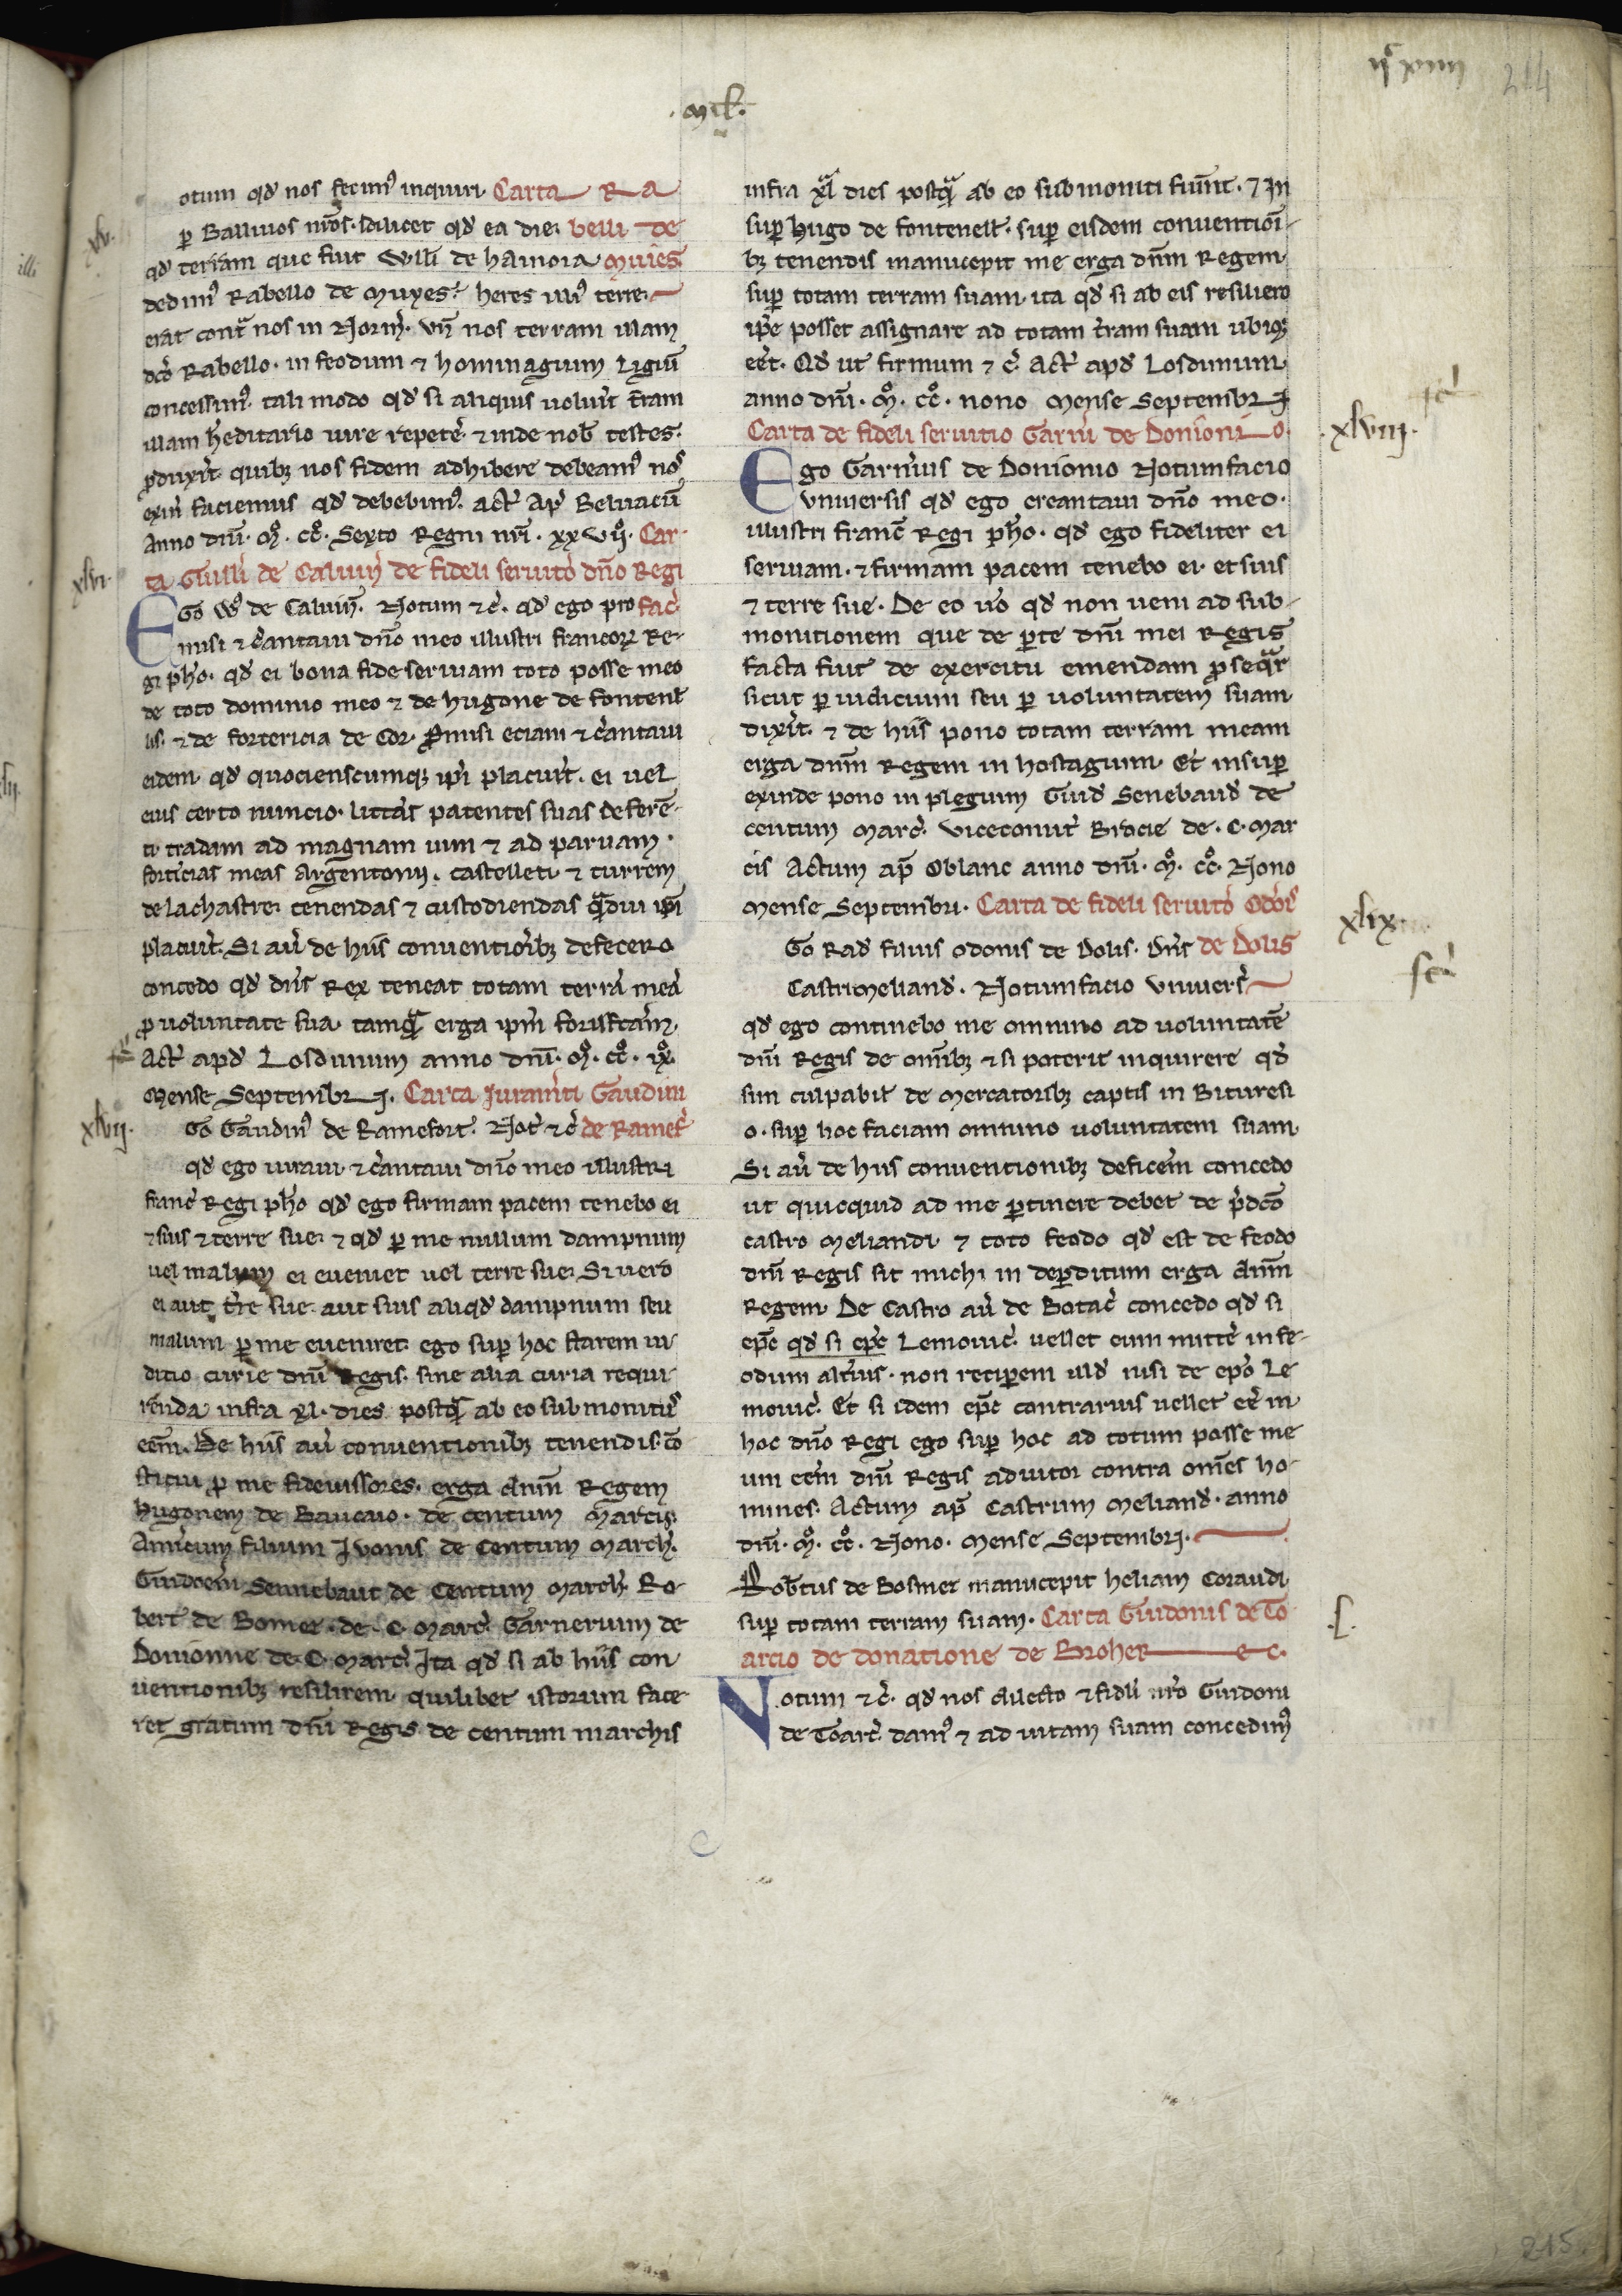 ijc xviij 214
. mil .
xlv.
otum qd' nos fecim9 inquiri. Carta Ra
p Balliuos nr̄os. scilicet qd' ea die. belli de
qd' terram que fuit Will'i de hamoia Muies.
dedim9 Rabello de Muxes. heres illi9 terre.
erat contª nos in Norm̄. vn̄ nos terram illam
dc̄o Rabello. in feodum ⁊ hominagium Ligiū
concessim9. tali modo qd' si aliquis uolu'it t'ram
illam h'editario iure repet'e. ⁊ inde nob' testes.
p̄duxit quibʒ nos fidem adhibere debeam9 nos
exin' faciemus qd' debebim9. Act' Ap' Beluacū
Anno dn̄i. m̊. cc̊. Sexto Regni nr̄i. xxvij̊. Car-
xlvi.
ta Guill'i de Caluin' de fideli seruit'o dn̄o Regi
Ego W9 de Caluin̄. Notum ⁊c̄. qd' ego pro fac'.
misi ⁊ c'antaui dn̄o meo illustri francoꝝ Re-
gi ph'o. qd' ei bona fide seruam toto posse meo
de toto dominio meo ⁊ de hugone de fontenel
lis. ⁊ de fortericia de Cor. P̄misi eciam ⁊ c'antaui
eidem qd' quocienscumqʒ ip̄i placuit. ei uel
eius certo nuncio. litt'as patentes suas deferē-
ti tradam ad magnam uim ⁊ ad paruam.
fort'icias meas Argentonij. castelleti. ⁊ turrem
de lachastre. tenendas ⁊ custodiendas qªdiu ip̄i
placuit. Si au' de hiis conuentioibʒ defecero
concedo qd' dn̄s Rex teneat totam terrā meā
p uoluntate sua. tamqª erga ip̄m forisfc̄am.
Act' apd' Losdunum anno dn̄i. m̊. cc̊. ix̊.
Mense Septembri. Carta Juram'ti Gaudini
xlvij.
Go Gaudin9 de Ramefort. Not' ⁊c' de Ramef'
qd' ego iuraui ⁊ c'antaui dn̄o meo illustri
franc' Regi ph'o qd' ego firmam pacem tenebo ei
⁊ suis ⁊ terre sue. ⁊ qd' p me nullum dampnum
uel malum ei eueniet uel terre sue. Si uero
ei aut t're sue. aut suis aliqd' dampnum seu
malum p me eueniret. ego sup hoc starem iu-
dicio curie dn̄i Regis. sine alia curia requi-
renda infra xl. dies postqª ab eo submonit9
eēm. De hiis au' conuentionibʒ tenendis. cō
stitui p me fideiussores. erga dn̄m Regem
hugonem de Bauceio. de centum Marcis.
Am'icum filium Jvonis de Centum March'.
Guidoem Sennebaut de Centum March'. Ro-
bert de Bomez. de. C. Marc'. Garnerum de
Donionne de. C. marc'. Ita qd' si ab hiis con
uentionibʒ resilirem. quilibet istorum face-
ret gratum dn̄i Regis de centum marchis
infra xl̊ dies postqª ab eo submoniti fuīnt. ⁊ In
sup hugo de fontenell'. sup eisdem conuentiōi-
bʒ tenendis manucepit me erga dn̄m Regem.
sup totam terram suam. ita qd' si ab eis resiliero
ip̄e posset assignare ad totam t'ram suam ubiqʒ
eet. Qd' ut firmum ⁊ c'. Act' apd' Losdunum.
anno dn̄i. m̊. cc̊. nono mense Septembri
xlviij.
Carta de fideli seruitio Garn'i de Donionio.
Ego Garn'ius de Donionio Notum facio
vniuersis qd' ego creantaui dn̄o meo.
illustri franc' Regi ph'o. qd' ego fideliter ei
seruiam. ⁊ firmam pacem tenebo ei. et suis
⁊ terre sue. De eo uo qd' non ueni ad sub-
monitionem que de parte dn̄i mei Regis
facta fuit de exercitu emendam p̄seqªr
sicut p iudicium seu p uoluntatem suam
dix'it. ⁊ de hiis pono totam terram meam
erga dn̄m Regem in hostagium. Et insup
exinde pono in plegium Guid' Senebaud' de
centum marc'. vicecomit' Brocie de. C. Mar
cis Actum ap' Oblanc anno dn̄i. m̊. cc̊. Nono
Mense Septembri. Carta de fideli seruit'o Odo'is
xlix.
Go Rad' filius odonis de Dolis. dn̄s de Dolis
Castrimeliand'. Notum facio vniuers'
qd' ego continebo me omnino ad uoluntatē
dn̄i Regis de omibʒ ⁊ si poterit inquirere qd'
sim culpabil' de mercatoribʒ captis in Bituresi
o. sup hoc faciam omnino uoluntatem suam.
Si au' de hiis conuentionibʒ deficerem concedo
ut quicquid ad me ptinere debet de p'dc̄o
castro Meliandi ⁊ toto feodo qd' est de feodo
dn̄i Regis sit michi in dep̄ditum erga dn̄m
Regem. De Castro au' de Botac' concedo qd' si
ep̄c qd' si ep̄c Lemouic'. uellet eum mitt'e in fe-
odum alt'ius. non recip̄em illd' nisi de epō Le
mouic'. Et si idem ep̄c contrarius uellet ee' in
hoc dn̄o Regi ego sup hoc ad totum posse me
um eēm dn̄i Regis adiutor contra om̄es ho-
mines. Actum ap' Castrum Meliand'. anno
dn̄i. m̊. cc̊. Nono. Mense Septembri.
Rob'tus de Bosmet manucepit heliam Coraudi.
.l.
sup totam terram suam. Carta Guidonis de To
arcio de donatione de Broher e c.
Notum ⁊c'. qd' nos dilecto ⁊ fid'li nr̄o Guidoni
de Toarc'. dam9 ⁊ ad uitam suam concedim9
215